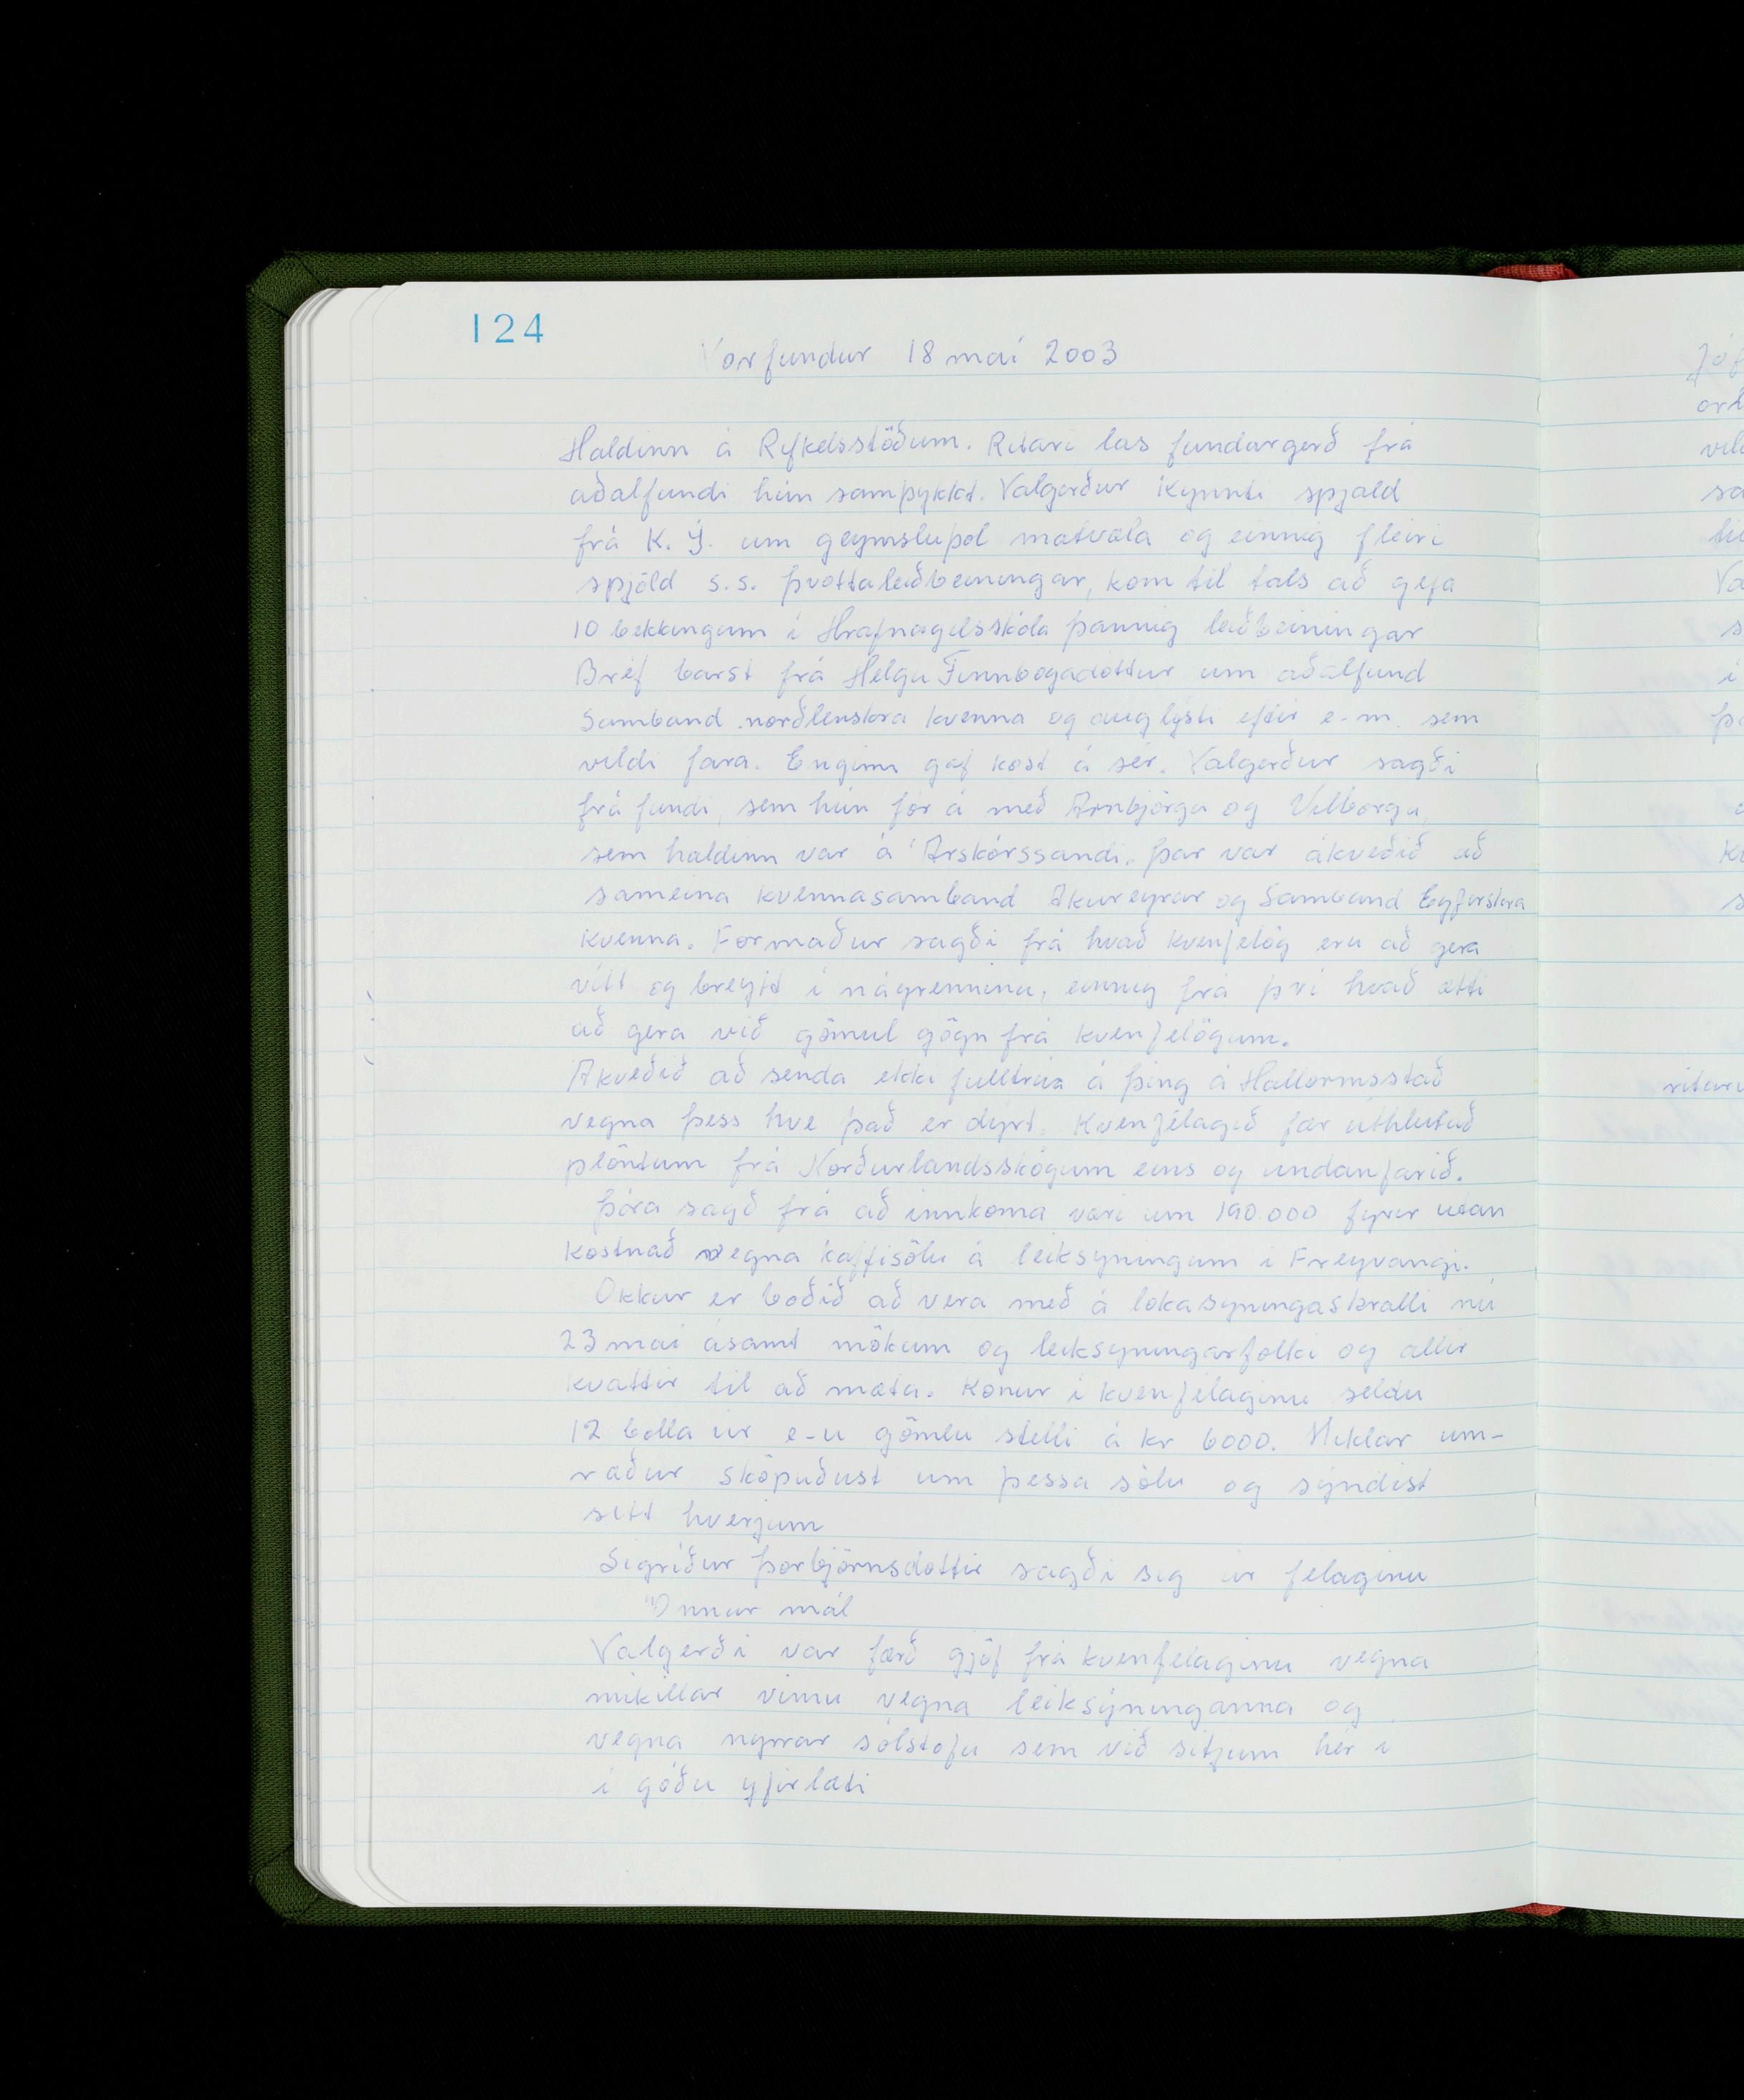 124
Vorfundur 18 maí 2003
Haldinn á Rifkelsstöðum. Ritari las fundargerð frá
aðalfundi hún samþykkt. Valgerður kynnti spjald
frá K. Í. um geymsluþol matvæla og einnig fleiri
spjöld s.s. þvottaleiðbeiningar, kom til tals að gefa
10 bekkingum í Hrafnagilsskóla þannig leiðbeiningar
Bréf barst frá Helgu Finnbogadóttur um aðalfund
Samband norðlenskra kvenna og auglýsti eftir e-m sem
vildi fara. Enginn gaf kost á sér. Valgerður sagði
frá fundi, sem hún fór á með Arnbjörgu og Vilborgu,
sem haldinn var á Árskórssandi. Þar var ákveðið að
sameina kvennasamband Akureyrar og Samband Eyfirskra
kvenna. Formaður sagði frá hvað kvenfélög eru að gera
vítt og breytt í nágrenninu, einnig frá því hvað ætti
að gera við gömul gögn frá kvenfélögum.
Ákveðið að senda ekki fulltrúa á þing á Hallormsstað
vegna þess hve það er dýrt. Kvenfélagið fær úthlutað
plöntum frá Norðurlandsskógum eins og undanfarið.
Þóra sagð frá að innkoma væri um 190.000 fyrir utan
kostnað vegna kaffisölu á leiksýningum í Freyvangi.
Okkur er boðið að vera með á lokasýningaskralli nú
23 maí ásamt mökum og leiksýningarfólki og allir
kvattir til að mæta. Konur í kvenfélaginu seldu
12 bolla úr e-u gömlu stelli á kr 6000. Miklar um-
ræður sköpuðust um þessa sölu og sýndist
sitt hverjum
Sigríður Þorbjörnsdóttir sagði sig úr félaginu
Önnur mál
Valgerði var færð gjöf frá kvenfélaginu vegna
mikillar vinnu vegna leiksýninganna og
vegna nýrrar sólstofu sem við sitjum hér í
í góðu yfirlæti